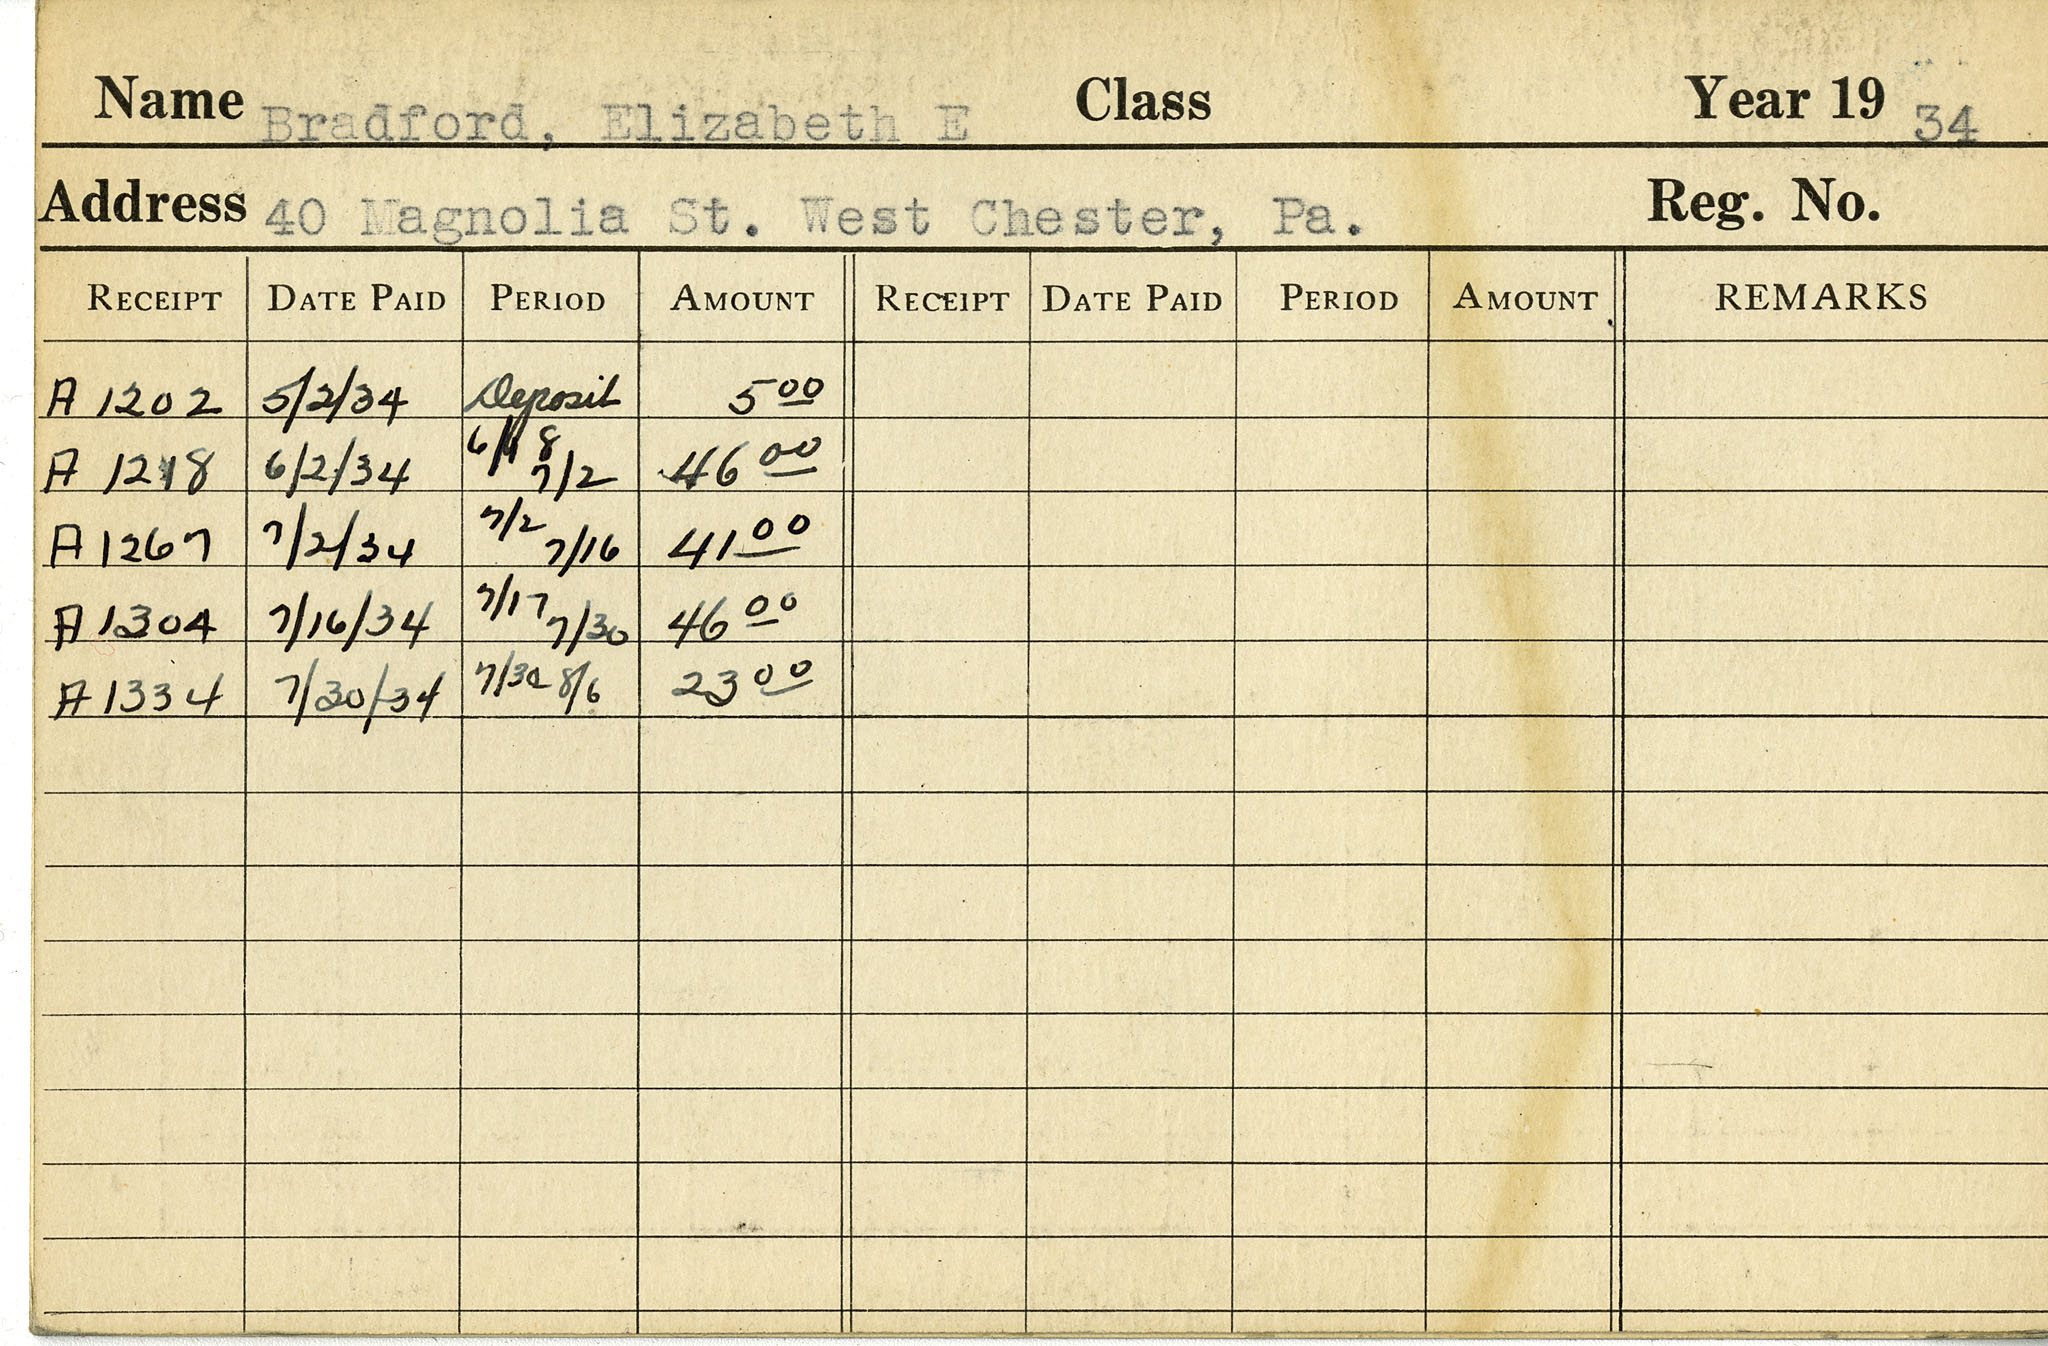 Name Bradford, Elizabeth E Class Year 19 34
Address 40 Magnolia St. West Chester, Pa. Reg. No.
RECEIPT DATE PAID PERIOD AMOUNT RECEIPT DATE PAID PERIOD AMOUNT REMARKS
A 1202 5/2/34 Deposit 5 00
A 1218 6/2/34 7/2 46 00
A 1267 7/2/34 7/2 7/16 41 00
A 1304 7/16/34 7/17 7/30 46 00
A 1334 7/30/34 7/30 8/6 23 00